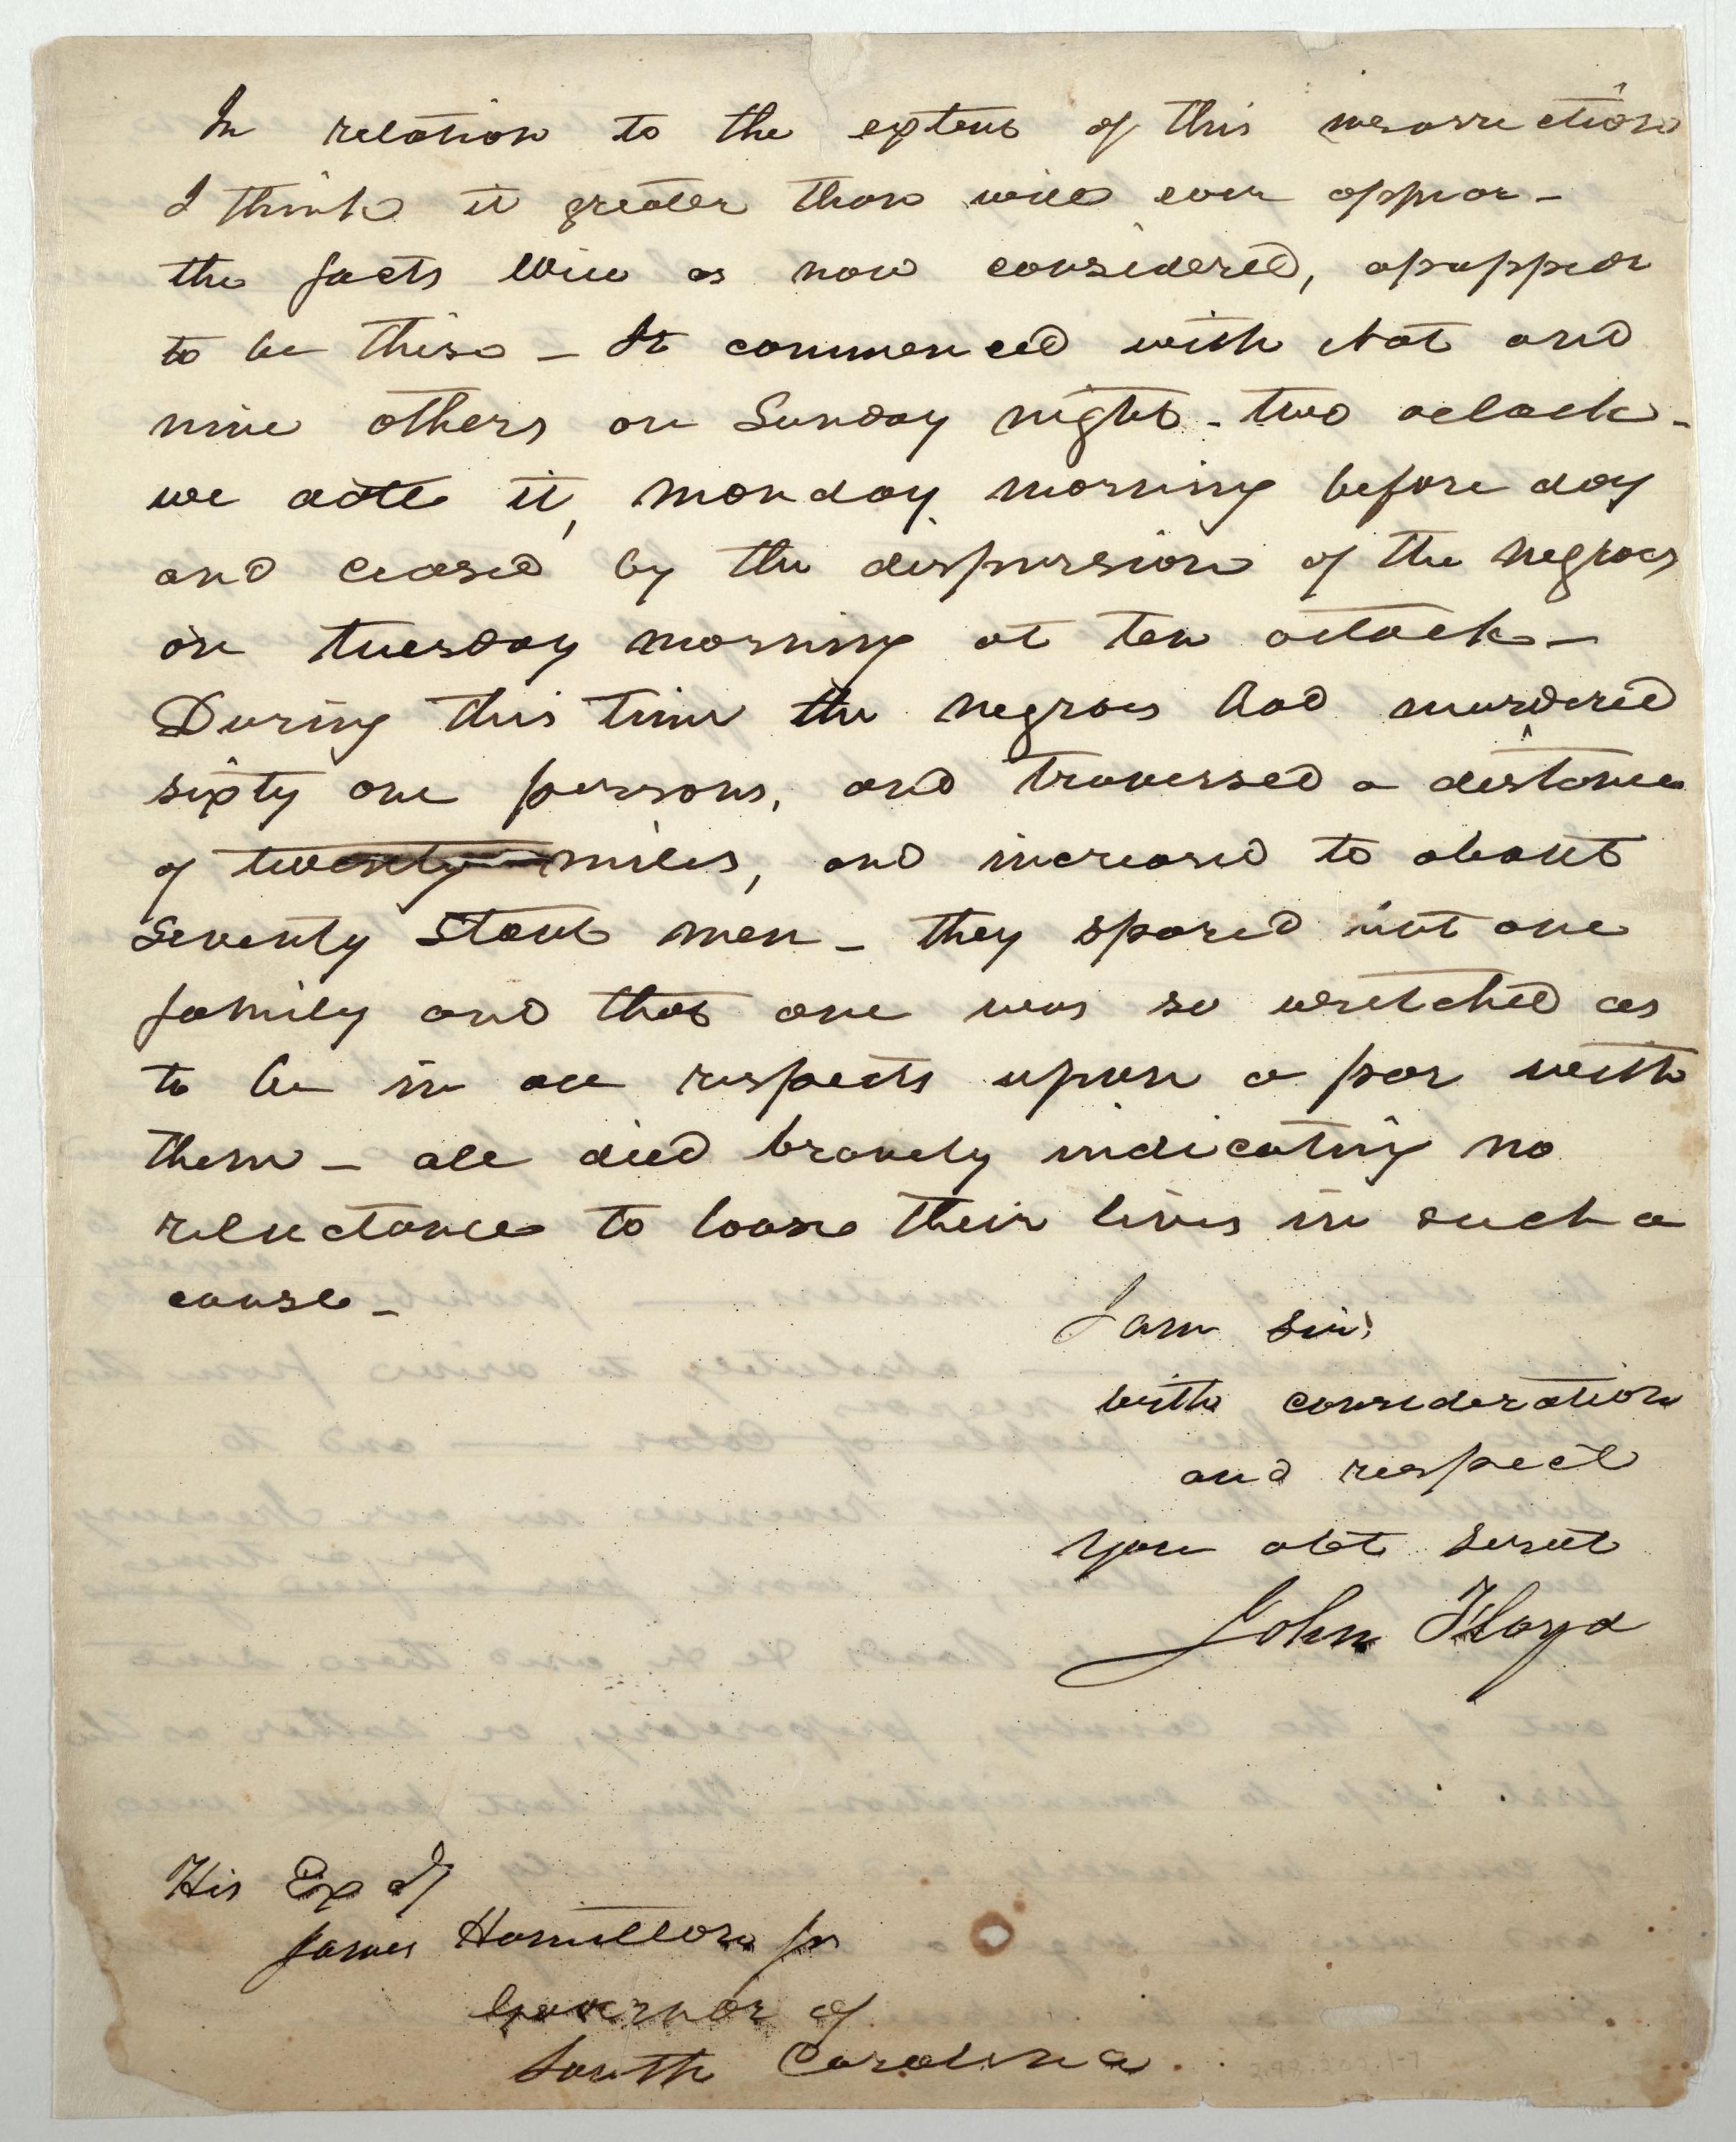 In relation to the extent of this insurrection
I think it greater than will ever appear -
the facts will as now considered, apappear
to be these - It commenced with Nat and
nine others on Sunday night - two oclock -
we date it, Monday morning before day
and ceased by the dispersion of the negroes
on tuesday morning at ten oclock -
During this time the negroes had murdered
sixty one persons, and traversed a distance
of twenty miles, and increased to about
Seventy stout men - they spared but one
family and that one was so wretched as
to be in all respects upon a par with
them - all died bravely indicating no
reluctance to loose their lives in such a
cause -
I am Sir,
with consideration
and respect
your obt Servt
John Floyd
His Exy
James Hamilton Jr
Governor of
South Carolina.